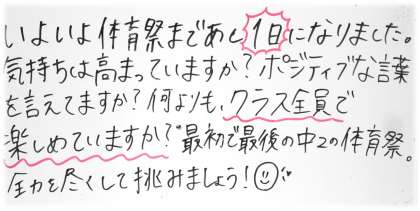 いよいよ体育祭まであと1日になりました。
気持ちは高まっていますか?ポジティブな言葉
を言えてますか?何よりも、クラス全員で
楽しめていますか?最初で最後の中2の体育祭。
全力を尽くして挑みましょう!